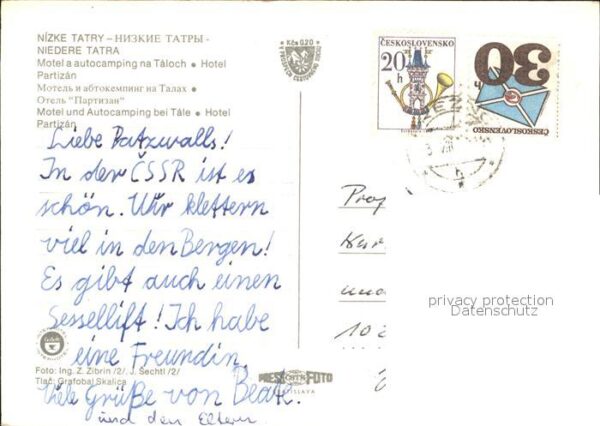 NÍZKE TATRY – НИЗКИЕ ТАТРЫ -
NIEDERE TATRA
Motel a autocamping na Táloch • Hotel
Partizán
Мотель и автокемпинг на Талах •
Отель "Партизан"
Motel und Autocamping bei Tále • Hotel
Partizán
Kčs 0,20
Liebe Patzwalls!
In der ČSSR ist es
schön. Wir klettern
viel in den Bergen!
Es gibt auch einen
Sessellift! Ich habe
eine Freundin.
Viele Grüße von Beate.
und den Eltern
Foto: Ing. Z. Zibrin /2/, J. Šechtl /2/
Tlač: Grafobal Skalica
FOTO
ČESKOSLOVENSKO
20
h
30
h
ČESKOSLOVENSKO
Prof
Kar
10
privacy protection
Datenschutz